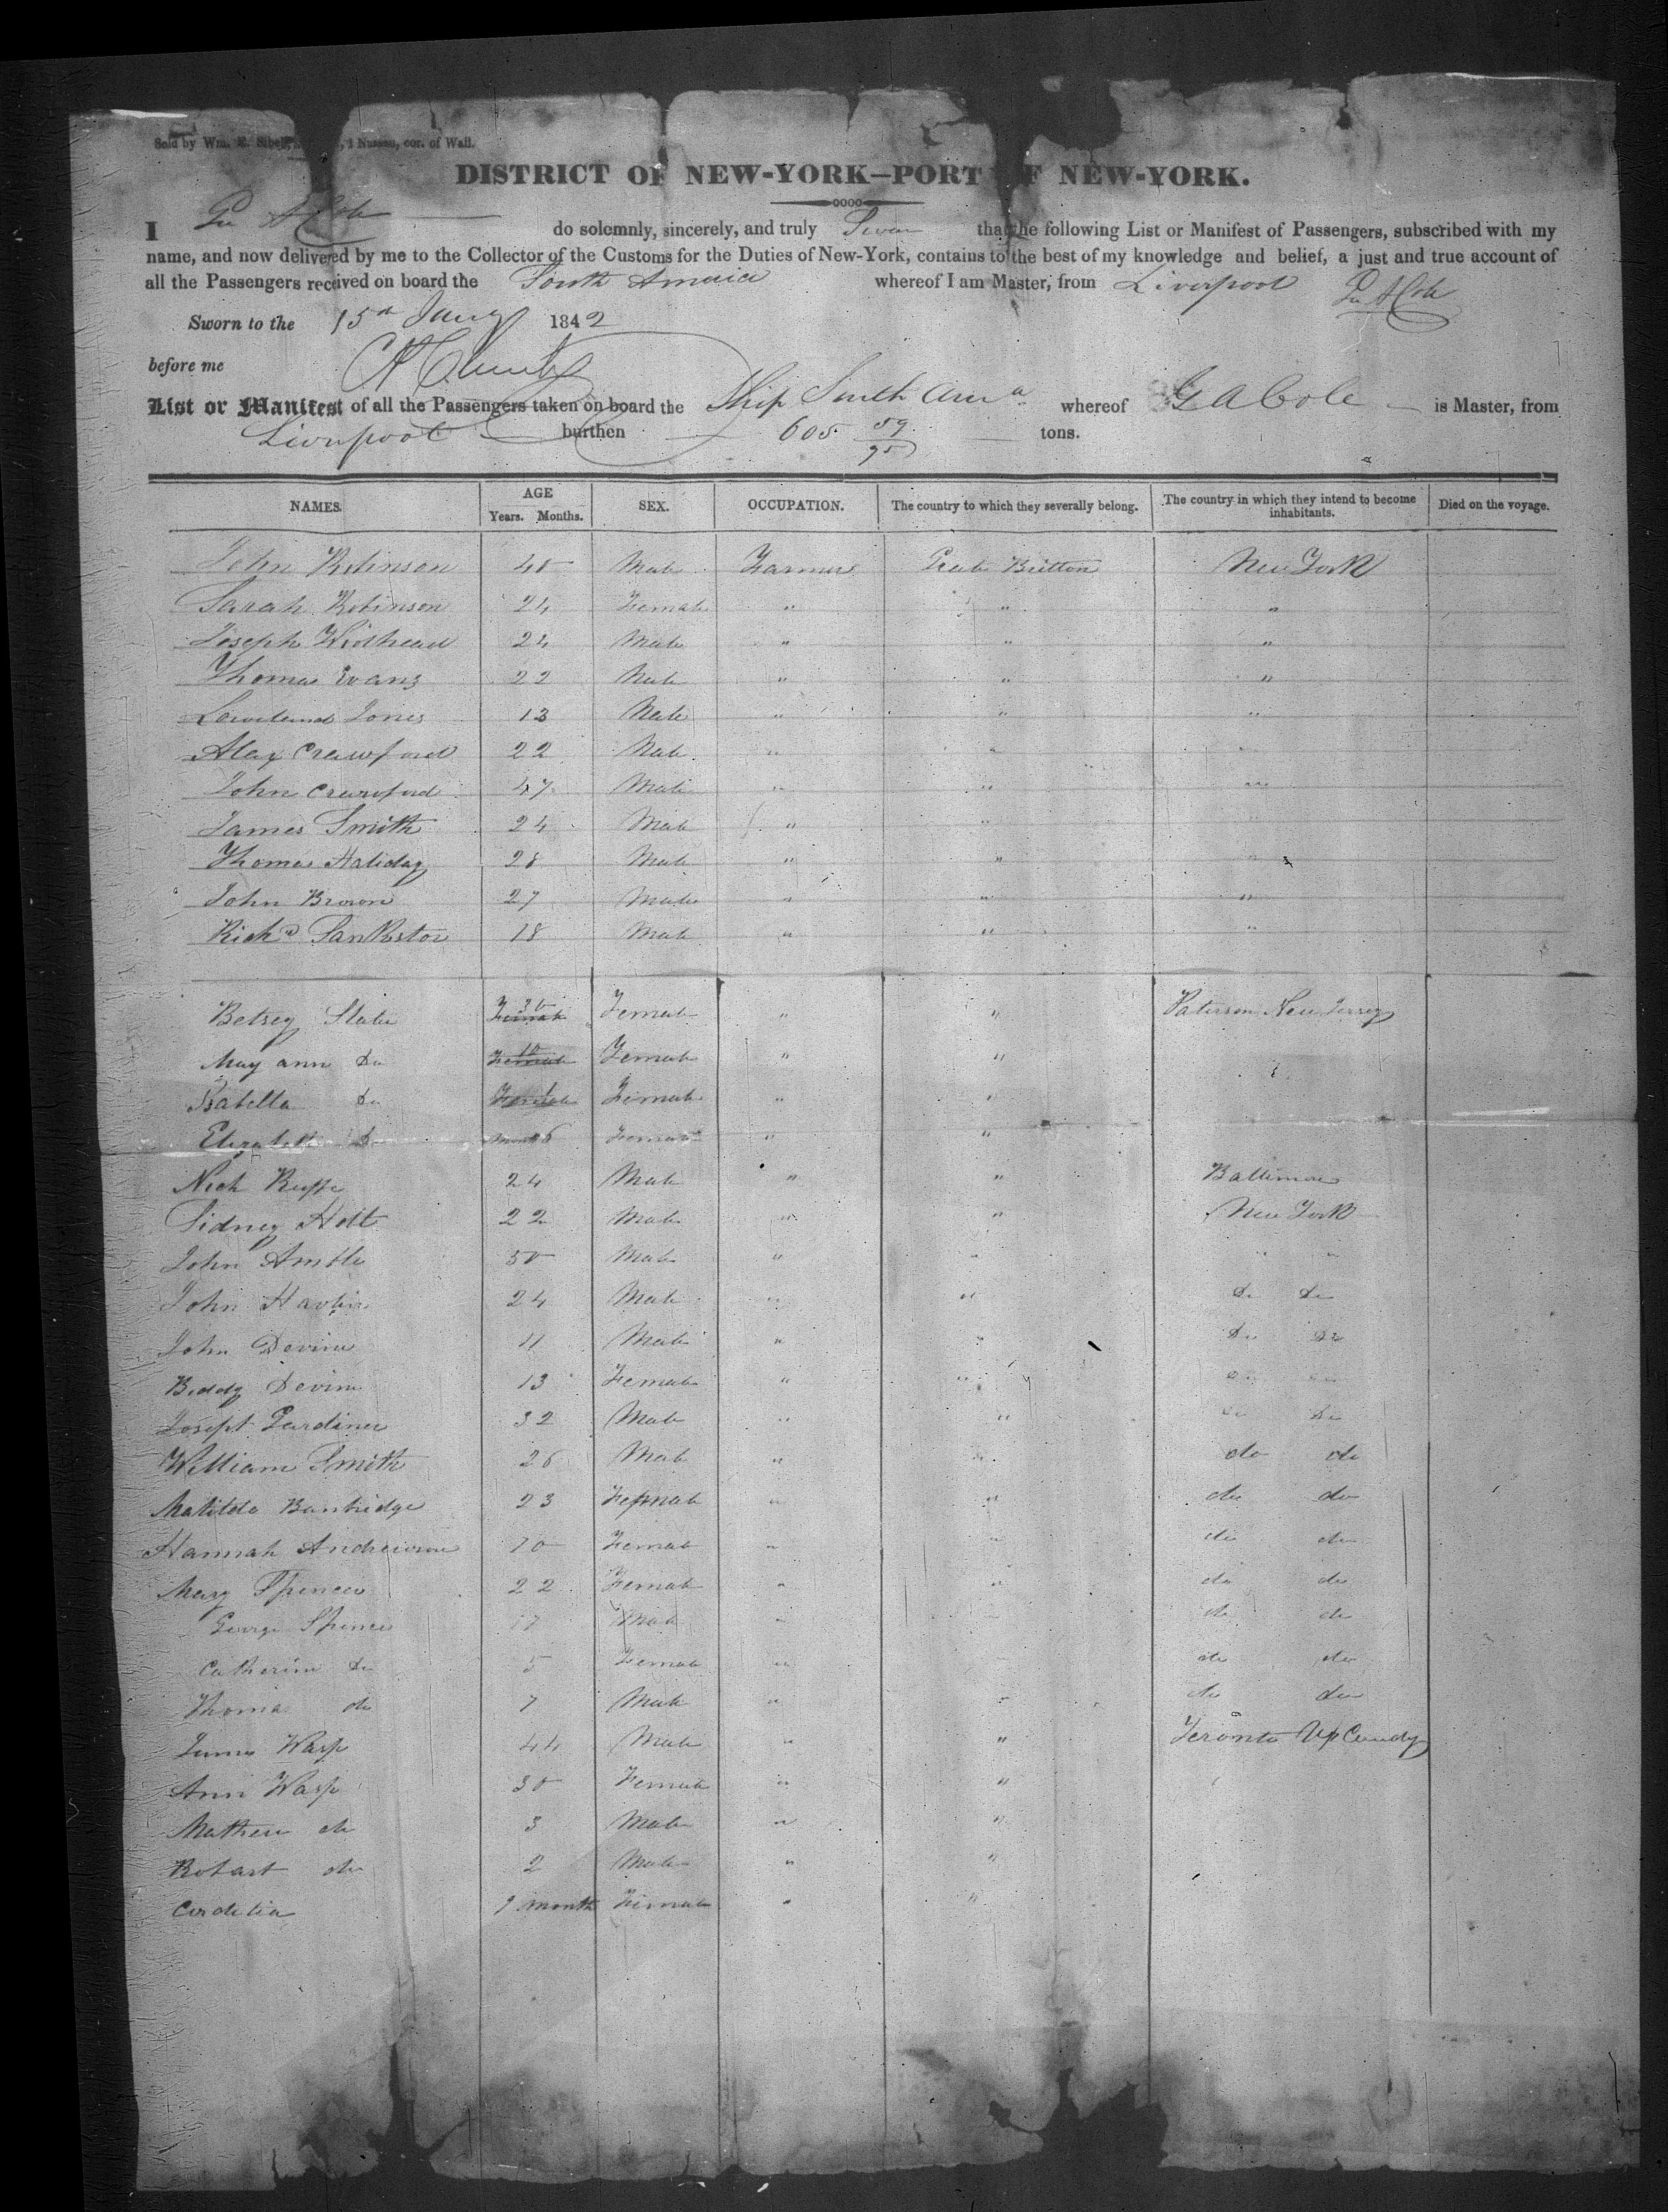 Sold by Wm. E. Sibell, 1 Nassau, cor. of Wall.
DISTRICT OF NEW-YORK—PORT OF NEW-YORK.
I Geo A Cole do solemnly, sincerely, and truly Swear that the following List or Manifest of Passengers, subscribed with my
name, and now delivered by me to the Collector of the Customs for the Duties of New-York, contains to the best of my knowledge and belief, a just and true account of
all the Passengers received on board the South America whereof I am Master, from Liverpool Geo A Cole
Sworn to the 15th Jany 1842
before me
List or Manifest of all the Passengers taken on board the Ship South Ama whereof G A Cole is Master, from
Liverpool burthen 605 59/95 tons.
NAMES. AGE Years. Months. SEX. OCCUPATION. The country to which they severally belong. The country in which they intend to become inhabitants. Died on the voyage.
John Robinson 40 Male Farmer Great Britton New York
Sarah Robinson 24 Female " " "
Joseph Widhead 24 Male " " "
Thomas Evans 22 Male " " "
Jones 13 Male " " "
Alex Crawford 22 Male " " "
John Crawford 47 Male " " "
James Smith 24 Male " " "
Thomas Haliday 28 Male " " "
John Brown 27 Male " " "
Richd Sankston 18 Male " " "
Betsey Slater 30 Female " " Paterson New Jersey
May ann Do 10 Female " "
Isabella Do Female " "
Elizabeth Do month 6 Female " "
Nich 24 Male " " Baltimore
Sidney Holt 22 Male " " New York
John Amble 50 Male " " " "
John 24 Male " " Do Do
John Devine 11 Male " " Do Do
Biddy Devine 13 Female " " Do Do
Josept Gardiner 32 Male " " Do Do
William Smith 26 Male " " do do
Matilda Banbridge 23 Female " " do do
Hannah Andrewson 70 Female " " do do
Mary Spencer 22 Female " " do do
George Spencer 17 Male " " do do
Catherine Do 5 Female " " do do
Thomas do 7 Male " " do do
James Wasp 44 Male " " Toronto Up Canady
Ann Wasp 30 Female " "
Mathew do 3 Male " "
Robart do 2 Male " "
Cordelia 9 month Female " "